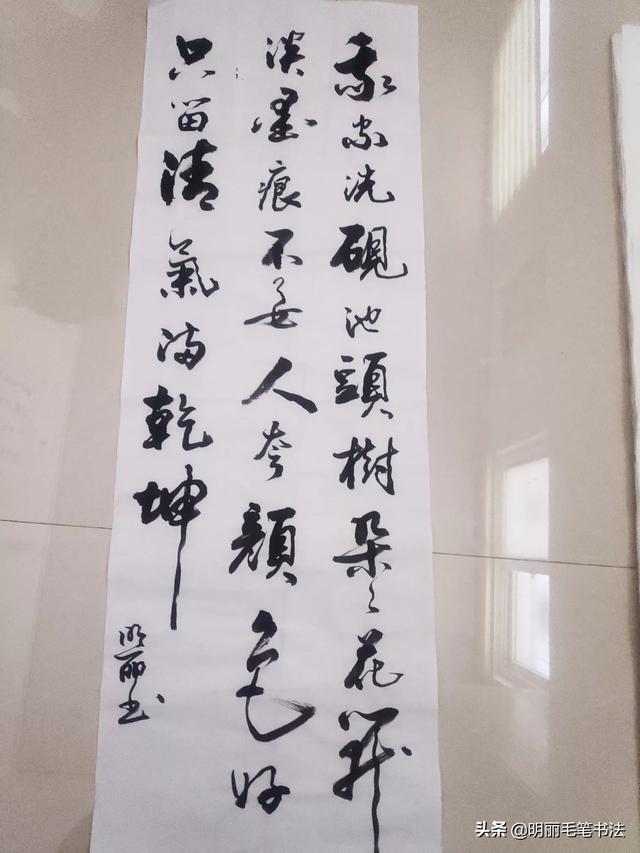 我家洗硯池頭樹朵々花開
淡墨痕不要人夸顏色好
只留清氣满乾坤
明丽书
头条 @明丽毛笔书法